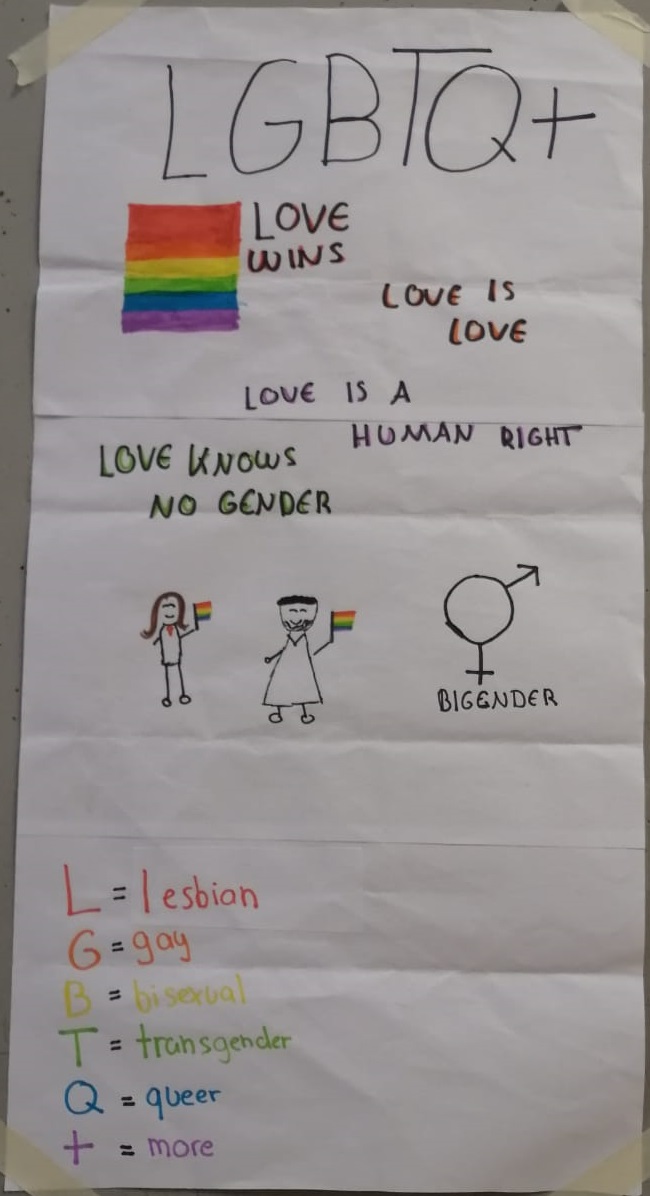 LGBTQ+
LOVE
WINS
LOVE IS
LOVE
LOVE IS A
HUMAN RIGHT
LOVE KNOWS
NO GENDER
BIGENDER
L = lesbian
G = gay
B = bisexual
T = transgender
Q = queer
+ = more